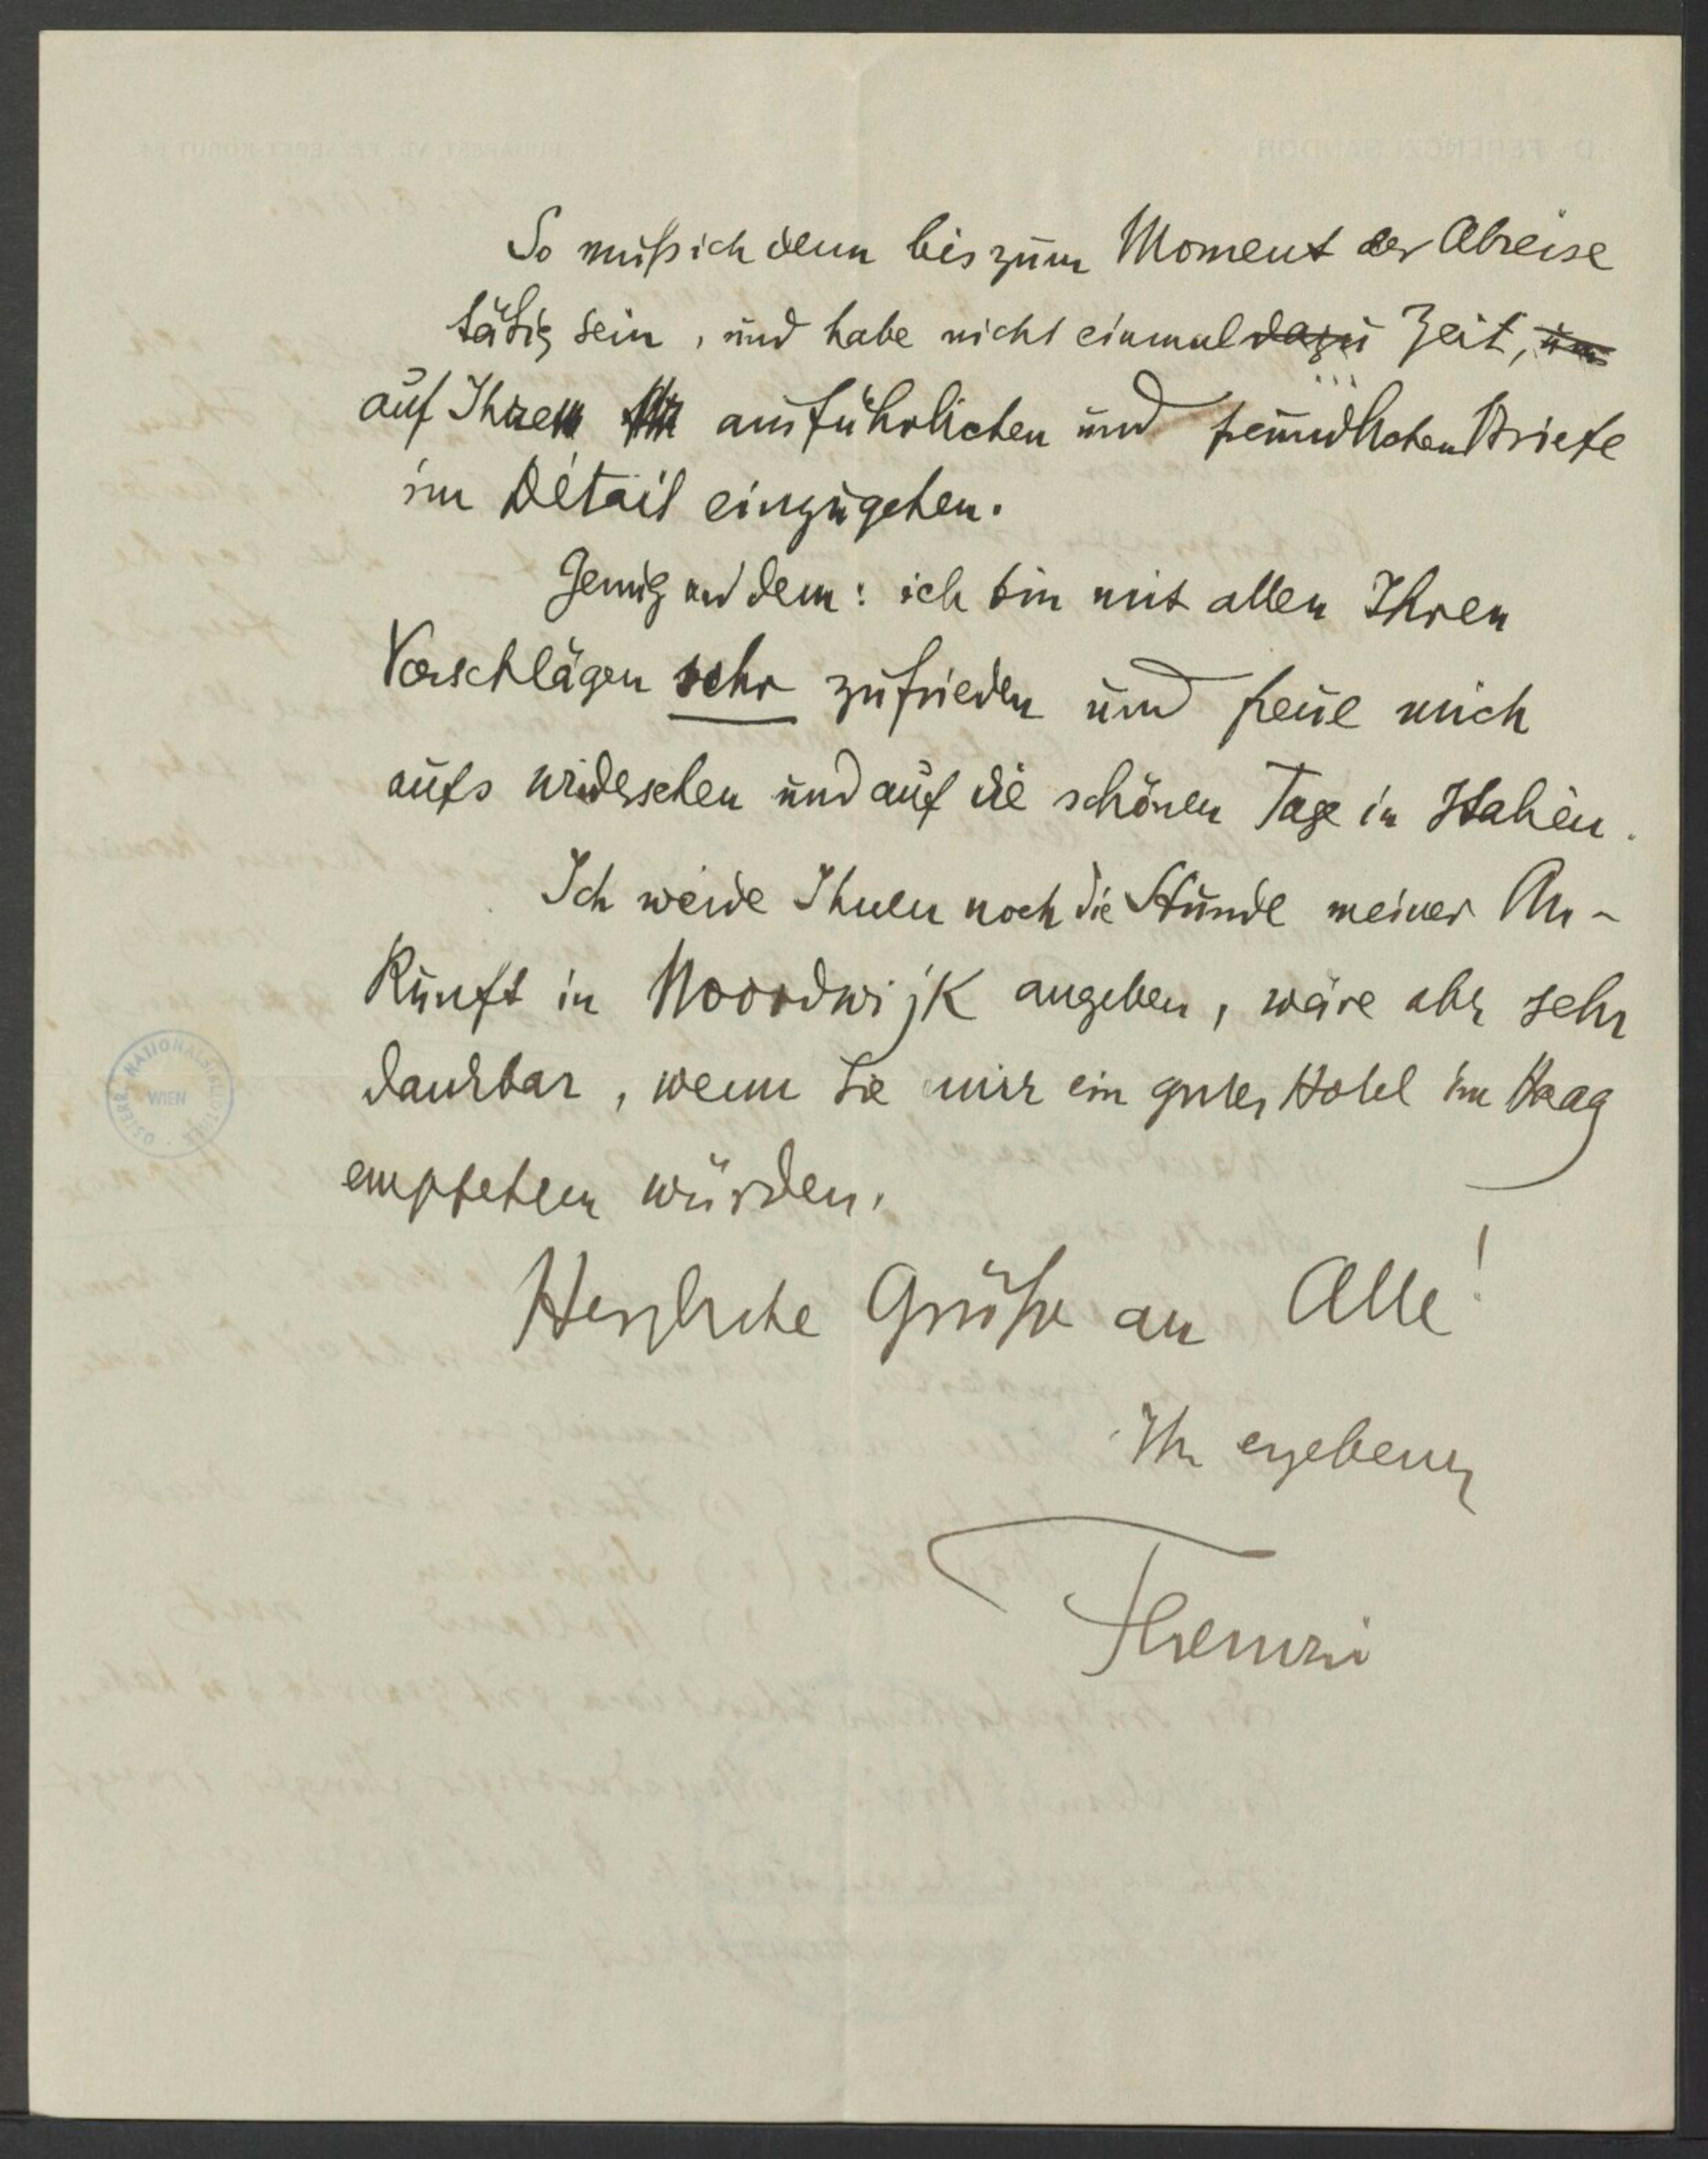 So muß ich denn bis zum Moment der Abreise
tätig sein, und habe nicht einmal dazu Zeit, um
auf Ihren ausführlichen und freundlichen Briefe
im Détail einzugehen.
Genug an dem: ich bin mit allen Ihren
Vorschlägen sehr zufrieden und freue mich
aufs widersehen und auf die schönen Tage in Italien.
Ich werde Ihnen noch die Stunde meiner An-
kunft in Noordwijk angeben, wäre aber sehr
dankbar, wenn Sie mir ein gutes Hotel im Haag
empfehlen würden.
Herzliche Grüße an Alle!
Ihr ergebener
Ferenczi
ÖSTERR. NATIONALBIBLIOTHEK
WIEN